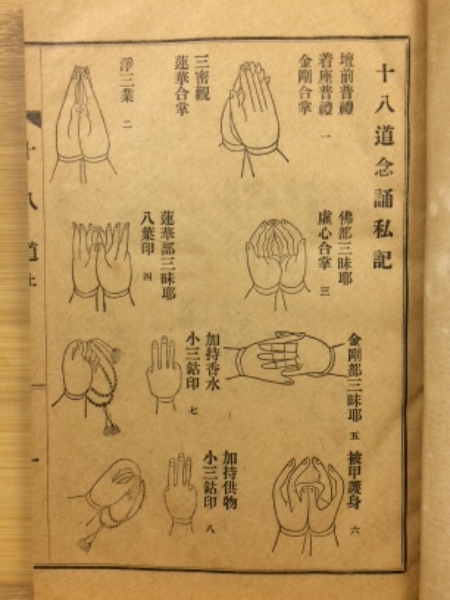 十八道念誦私記
壇前普禮
着座普禮
金剛合掌 一
三密觀
蓮華合掌
淨三業 二
佛部三昧耶
虛心合掌 三
蓮華部三昧耶
八葉印 四
金剛部三昧耶 五
被甲護身 六
加持香水
小三鈷印 七
加持供物
小三鈷印 八
十八道上
一